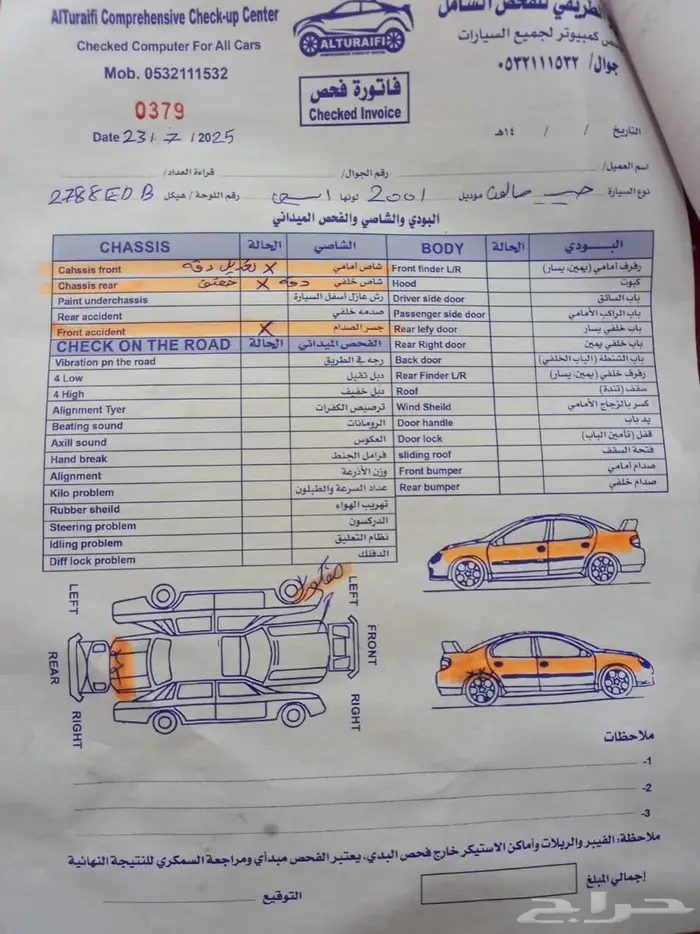 AlTuraifi Comprehensive Check-up Center
Checked Computer For All Cars
Mob. 0532111532
ALTURAIFI
الطريفي للفحص الشامل
كمبيوتر لجميع السيارات
جوال/ ٠٥٣٢١١١٥٣٢
0379
فاتورة فحص
Checked Invoice
Date 23/7/2025
التاريخ / / ١٤هـ
اسم العميل/ رقم الجوال/ قراءة العداد/
نوع السيارة جيب صالون موديل 2001 لونها رقم اللوحة / هيكل 2788EDB
البودي والشاصي والفحص الميداني
CHASSIS الحالة الشاصي BODY الحالة البـــودي
Cahssis front X تعديل دقه شاص أمامي Front finder L/R رفرف أمامي (يمين، يسار)
Chassis rear X دقه شاص خلفي Hood كبوت
Paint underchassis رش عازل أسفل السيارة Driver side door باب السائق
Rear accident صدمه خلفي Passenger side door باب الراكب الأمامي
Front accident X جسر الصدام Rear lefy door باب خلفي يسار
CHECK ON THE ROAD الحالة الفحص الميداني Rear Right door باب خلفي يمين
Vibration pn the road رجه في الطريق Back door باب الشنطة (الباب الخلفي)
4 Low دبل ثقيل Rear Finder L/R رفرف خلفي (يمين، يسار)
4 High دبل خفيف Roof سقف (تندة)
Alignment Tyer ترصيص الكفرات Wind Sheild كسر بالزجاج الأمامي
Beating sound الرومانات Door handle يد باب
Axill sound العكوس Door lock قفل (تأمين الباب)
Hand break فرامل الجنط sliding roof فتحة السقف
Alignment وزن الأذرعة Front bumper صدام أمامي
Kilo problem عداد السرعة والطبلون Rear bumper صدام خلفي
Rubber sheild تهريب الهواء
Steering problem الدركسون
Idling problem نظام التعليق
Diff lock problem الدفلك
LEFT LEFT
REAR FRONT
RIGHT RIGHT
ملاحظات
-1
-2
-3
ملاحظة: الفيبر والربلات وأماكن الاستيكر خارج فحص البدي، يعتبر الفحص مبدأي ومراجعة السمكري للنتيجة النهائية
إجمالي المبلغ
التوقيع
حراج